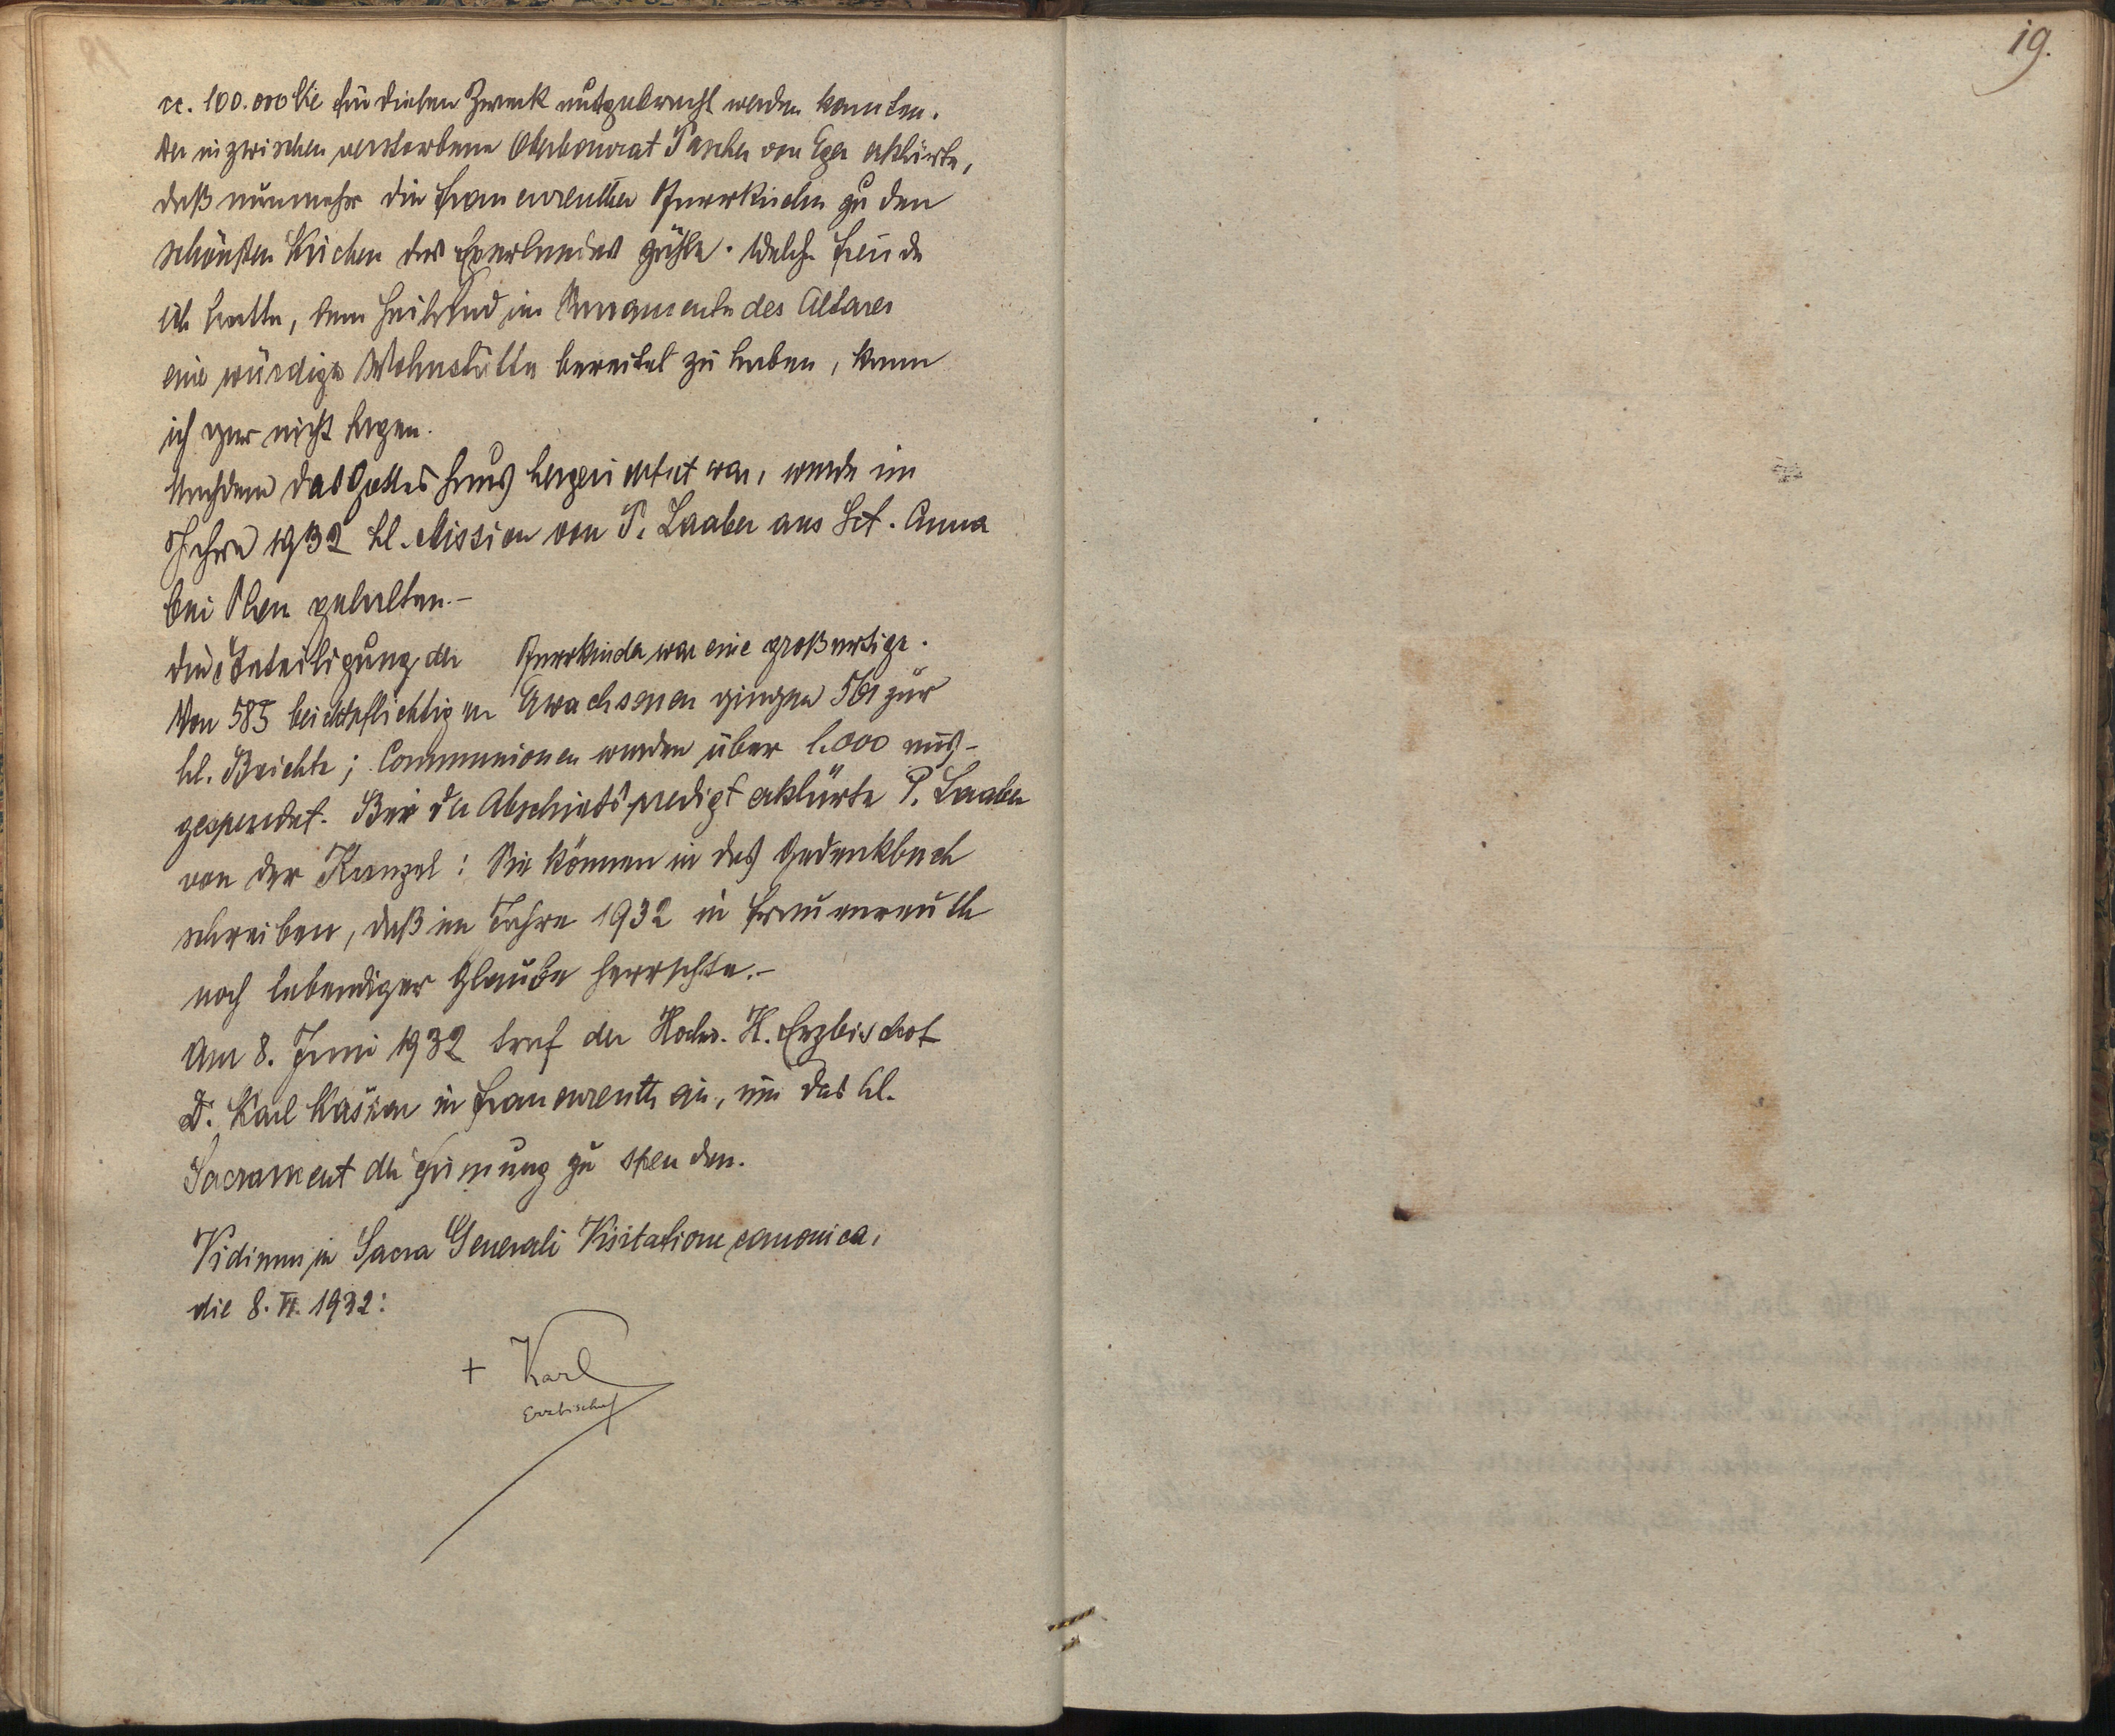 19.
cc. 100.000 Kč für diesen Zweck aufgebracht werden konnten.
Der inzwischen verstorbene Oberbaurat Pascher von Eger erklärte,
daß nunmehr die Frauenreuther Pfarrkirche zu den
schönsten Kirchen des Egerlandes zähle. Welche Freude
ich hatte, dem Heiland im Sacramente des Altares
eine würdige Wohnstätte bereitet zu haben, kann
ich gar nicht sagen.
Nachdem das Gotteshaus hergerichtet war, wurde im
Jahre 1932 hl. Mission von P. Laaber aus Sct. Anna
bei Plan gehalten.-
Die Beteiligung der Pfarrkinder war eine großartige.
Von 585 beichtpflichtigen Erwachsenen gingen 561 zur
hl. Beichte; Communionen wurden über 1.000 aus-
gespendet. Bei der Abschiedspredigt erklärte P. Laaber
von der Kanzel: Sie können in das Gedenkbuch
schreiben, daß im Jahre 1932 in Frauenreuth
noch lebendiger Glaube herrschte.-
Am 8. Juni 1932 traf der Hochw. H. Erzbischof
Dr. Karl Kašpar in Frauenreuth ein, um das hl.
Sacrament der Firmung zu spenden.
Vidimus in Sacra Generali Visitatione canonica,
die 8. VI. 1932:
+ Karl
Erzbischof